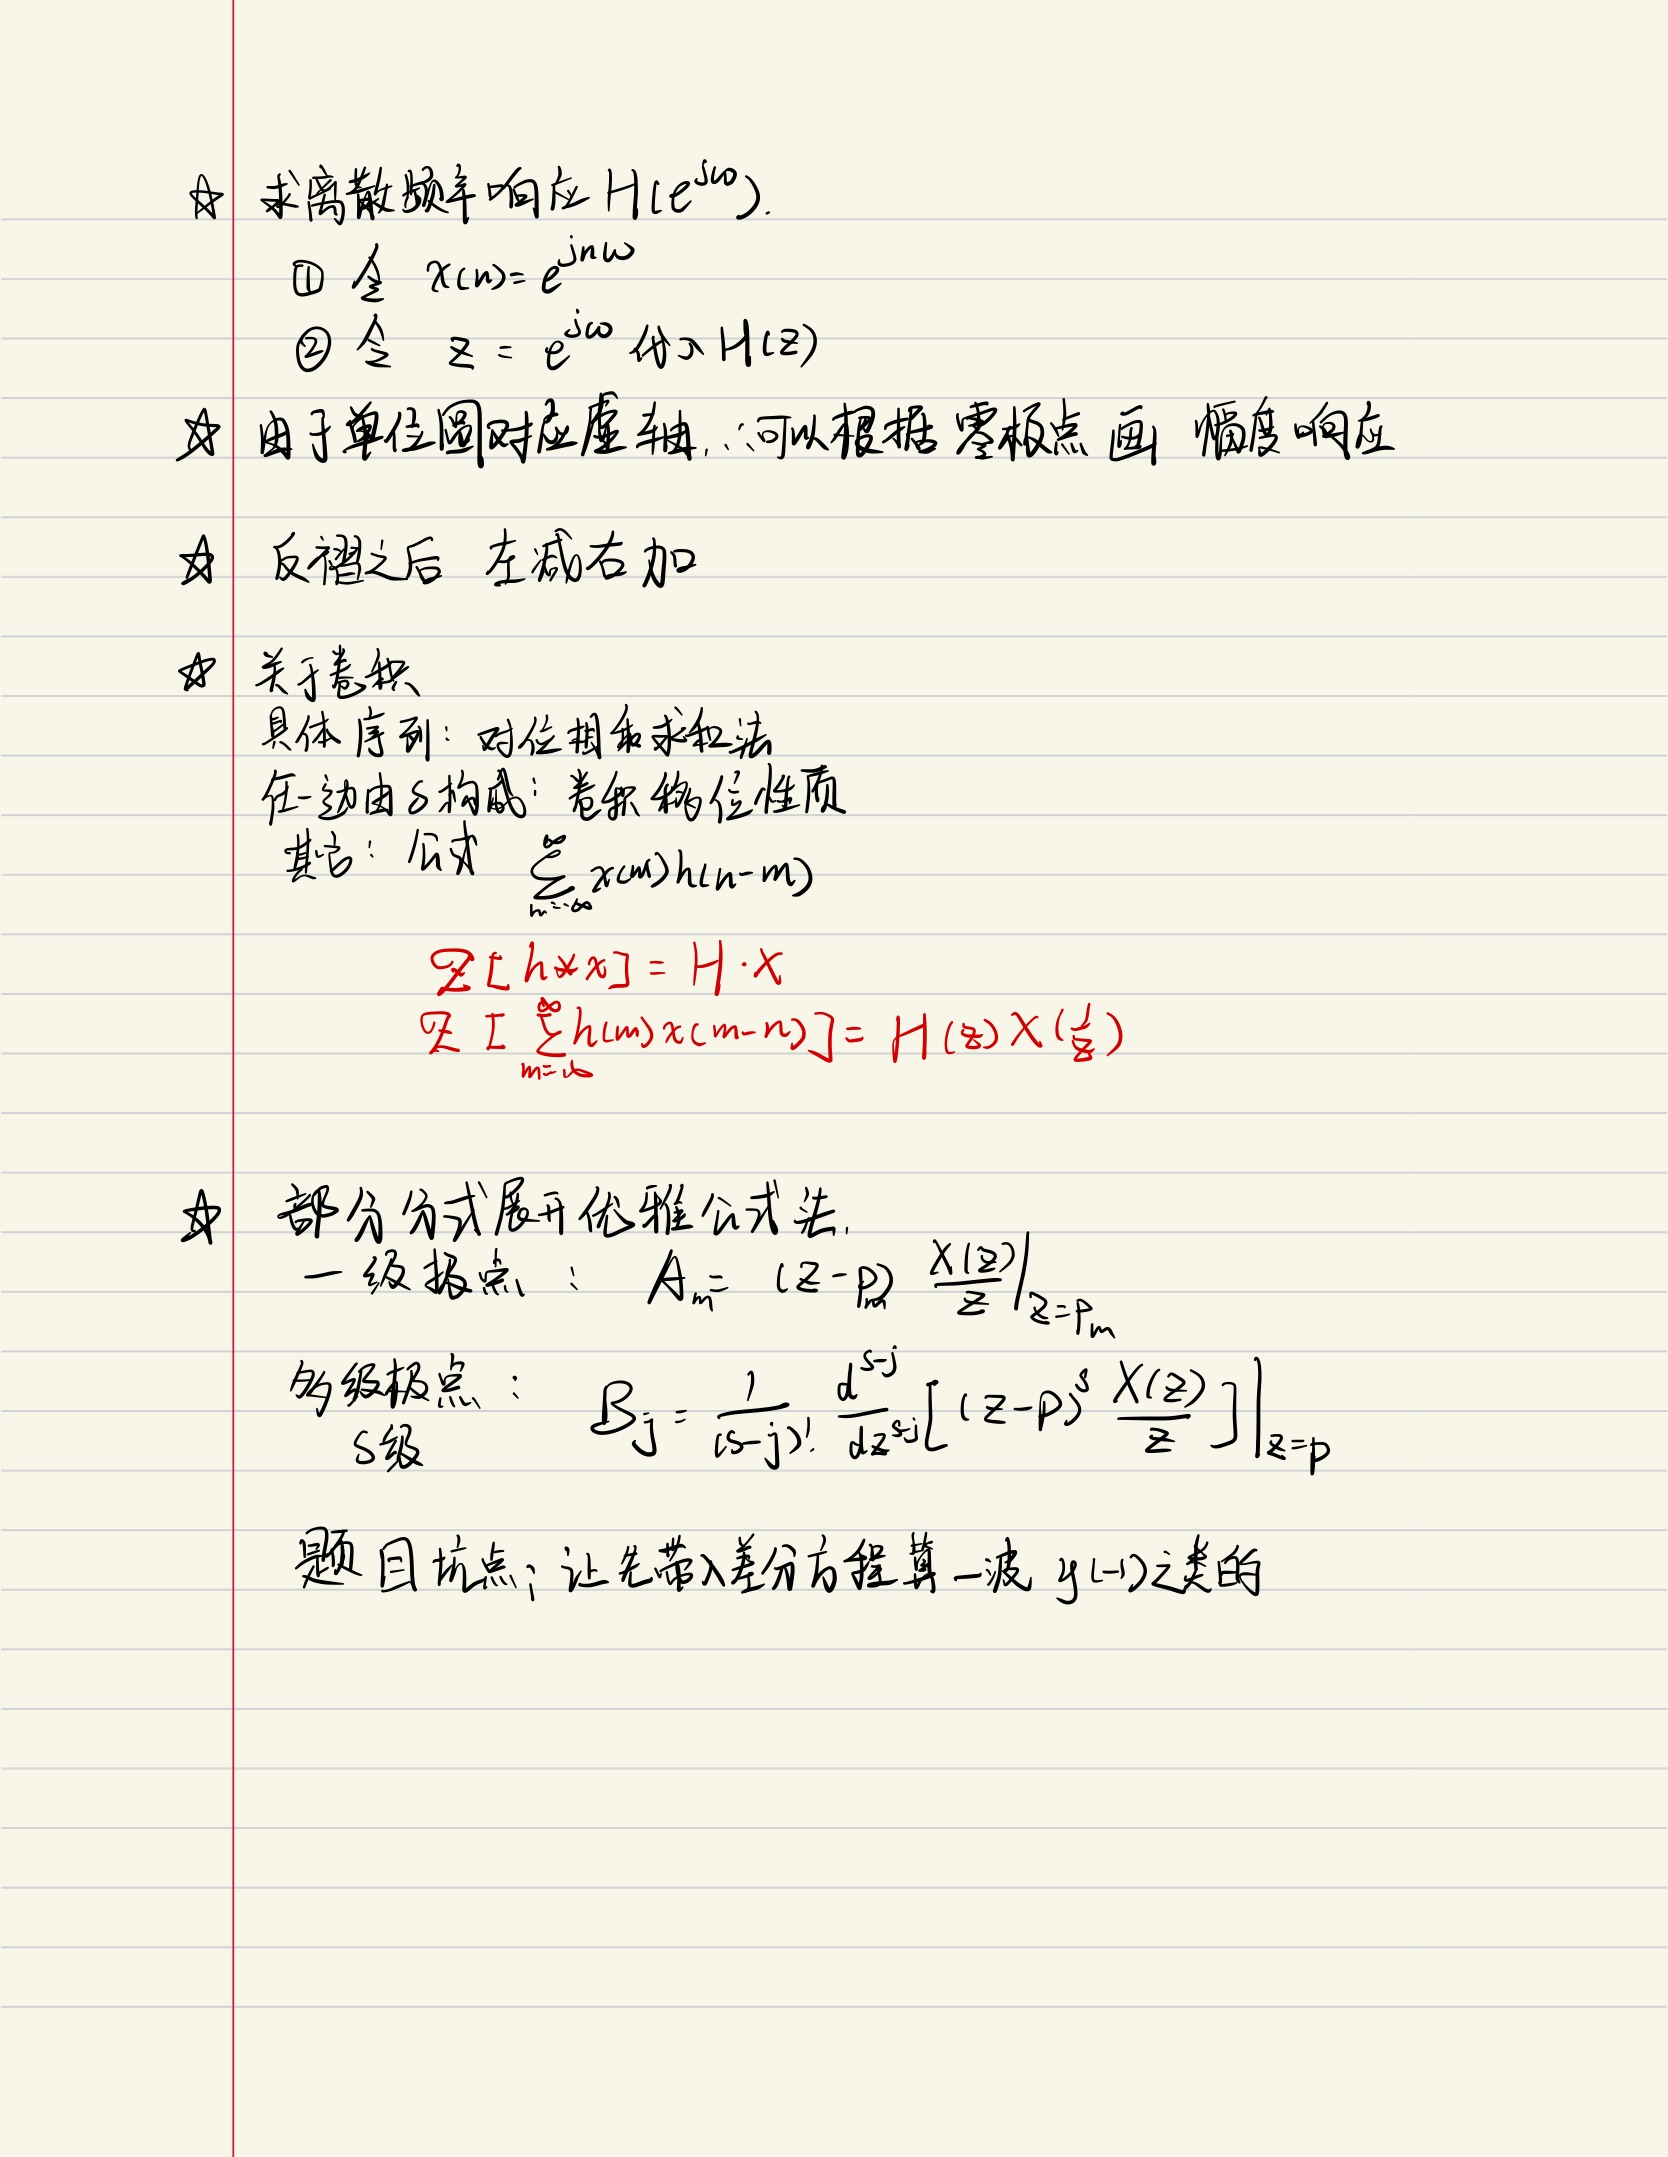 ☆ 求离散频率响应 H(e^{jω}).
① 令 x(n)=e^{jnω}
② 令 z = e^{jω} 代入 H(z)
☆ 由于单位圆对应虚轴,∴可以根据零极点画 幅度响应
☆ 反褶之后 左减右加
☆ 关于卷积
具体序列: 对位相乘求和法
任一边由δ构成: 卷积移位性质
其它: 公式 \sum_{m=-∞}^{∞} x(m)h(n-m)
Z[h*x] = H·X
Z[\sum_{m=-∞}^{∞} h(m)x(m-n)] = H(z)X(\frac{1}{z})
☆ 部分分式展开优雅公式法.
一级极点: A_m = (z-p_m) \frac{X(z)}{z}|_{z=p_m}
多级极点: B_j = \frac{1}{(s-j)!} \frac{d^{s-j}}{dz^{s-j}}[(z-p)^s \frac{X(z)}{z}]|_{z=p}
s级
题目坑点; 让先带入差分方程算一波 y(-1)之类的